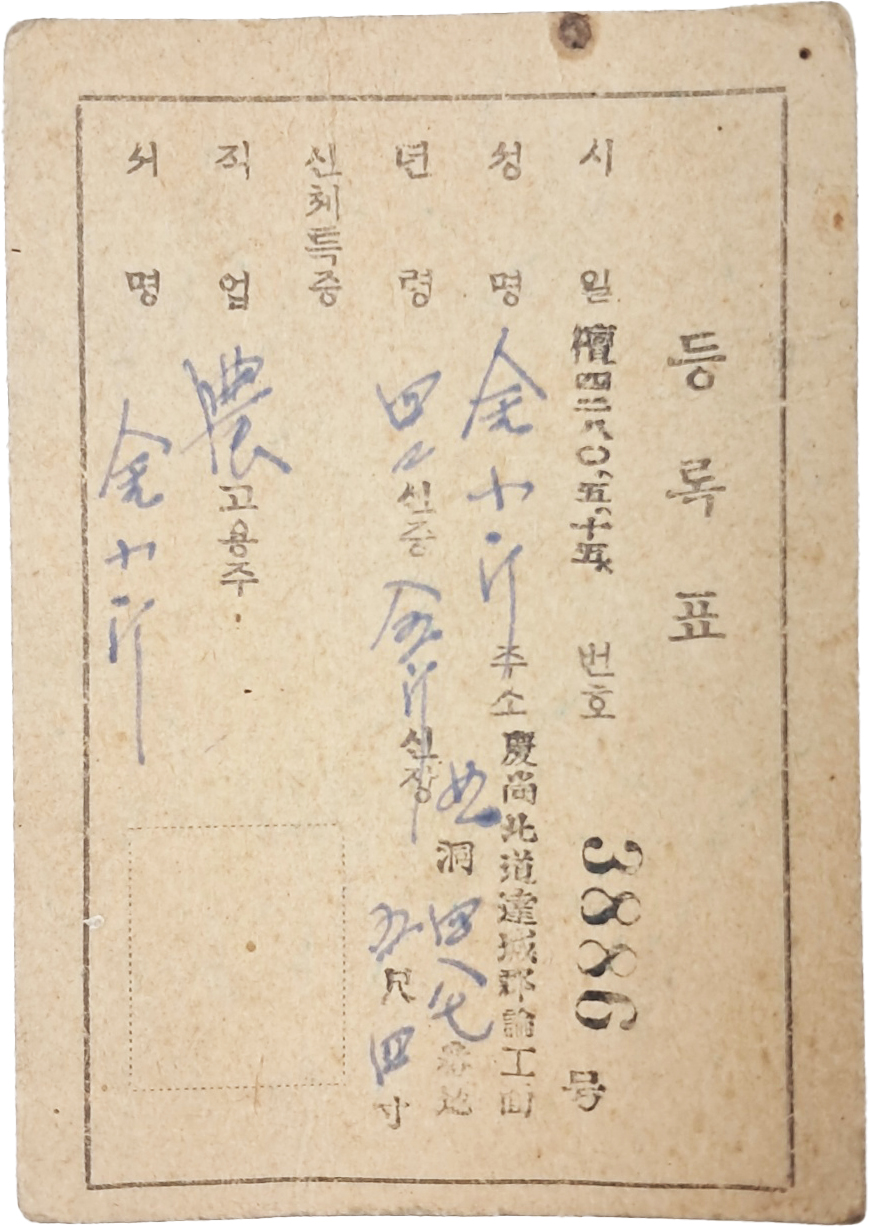 등록표
시일 檀四二八〇,五,十五, 번호 3886号
성명 金小 주소 慶尚北道達城郡論工面
洞 四八七 番地
년령 四二 신중 신장 五尺四寸
신체특증
직업 農 고용주
서명 金小